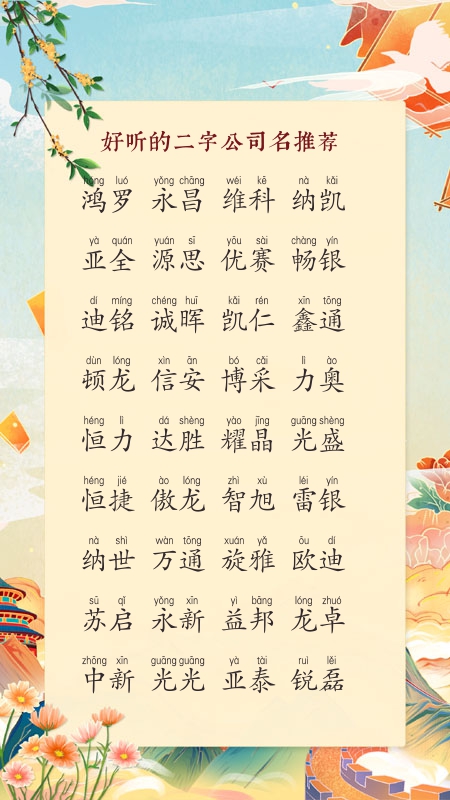 好听的二字公司名推荐
hóng luó yǒng chāng wéi kē nà kǎi
鸿罗 永昌 维科 纳凯
yà quán yuán sī yōu sài chàng yín
亚全 源思 优赛 畅银
dí míng chéng huī kǎi rén xīn tōng
迪铭 诚晖 凯仁 鑫通
dùn lóng xìn ān bó cǎi lì ào
顿龙 信安 博采 力奥
héng lì dá shèng yào jīng guāng shèng
恒力 达胜 耀晶 光盛
héng jié ào lóng zhì xù léi yín
恒捷 傲龙 智旭 雷银
nà shì wàn tōng xuán yǎ ōu dí
纳世 万通 旋雅 欧迪
sū qǐ yǒng xīn yì bāng lóng zhuó
苏启 永新 益邦 龙卓
zhōng xīn guāng guāng yà tài ruì lěi
中新 光光 亚泰 锐磊